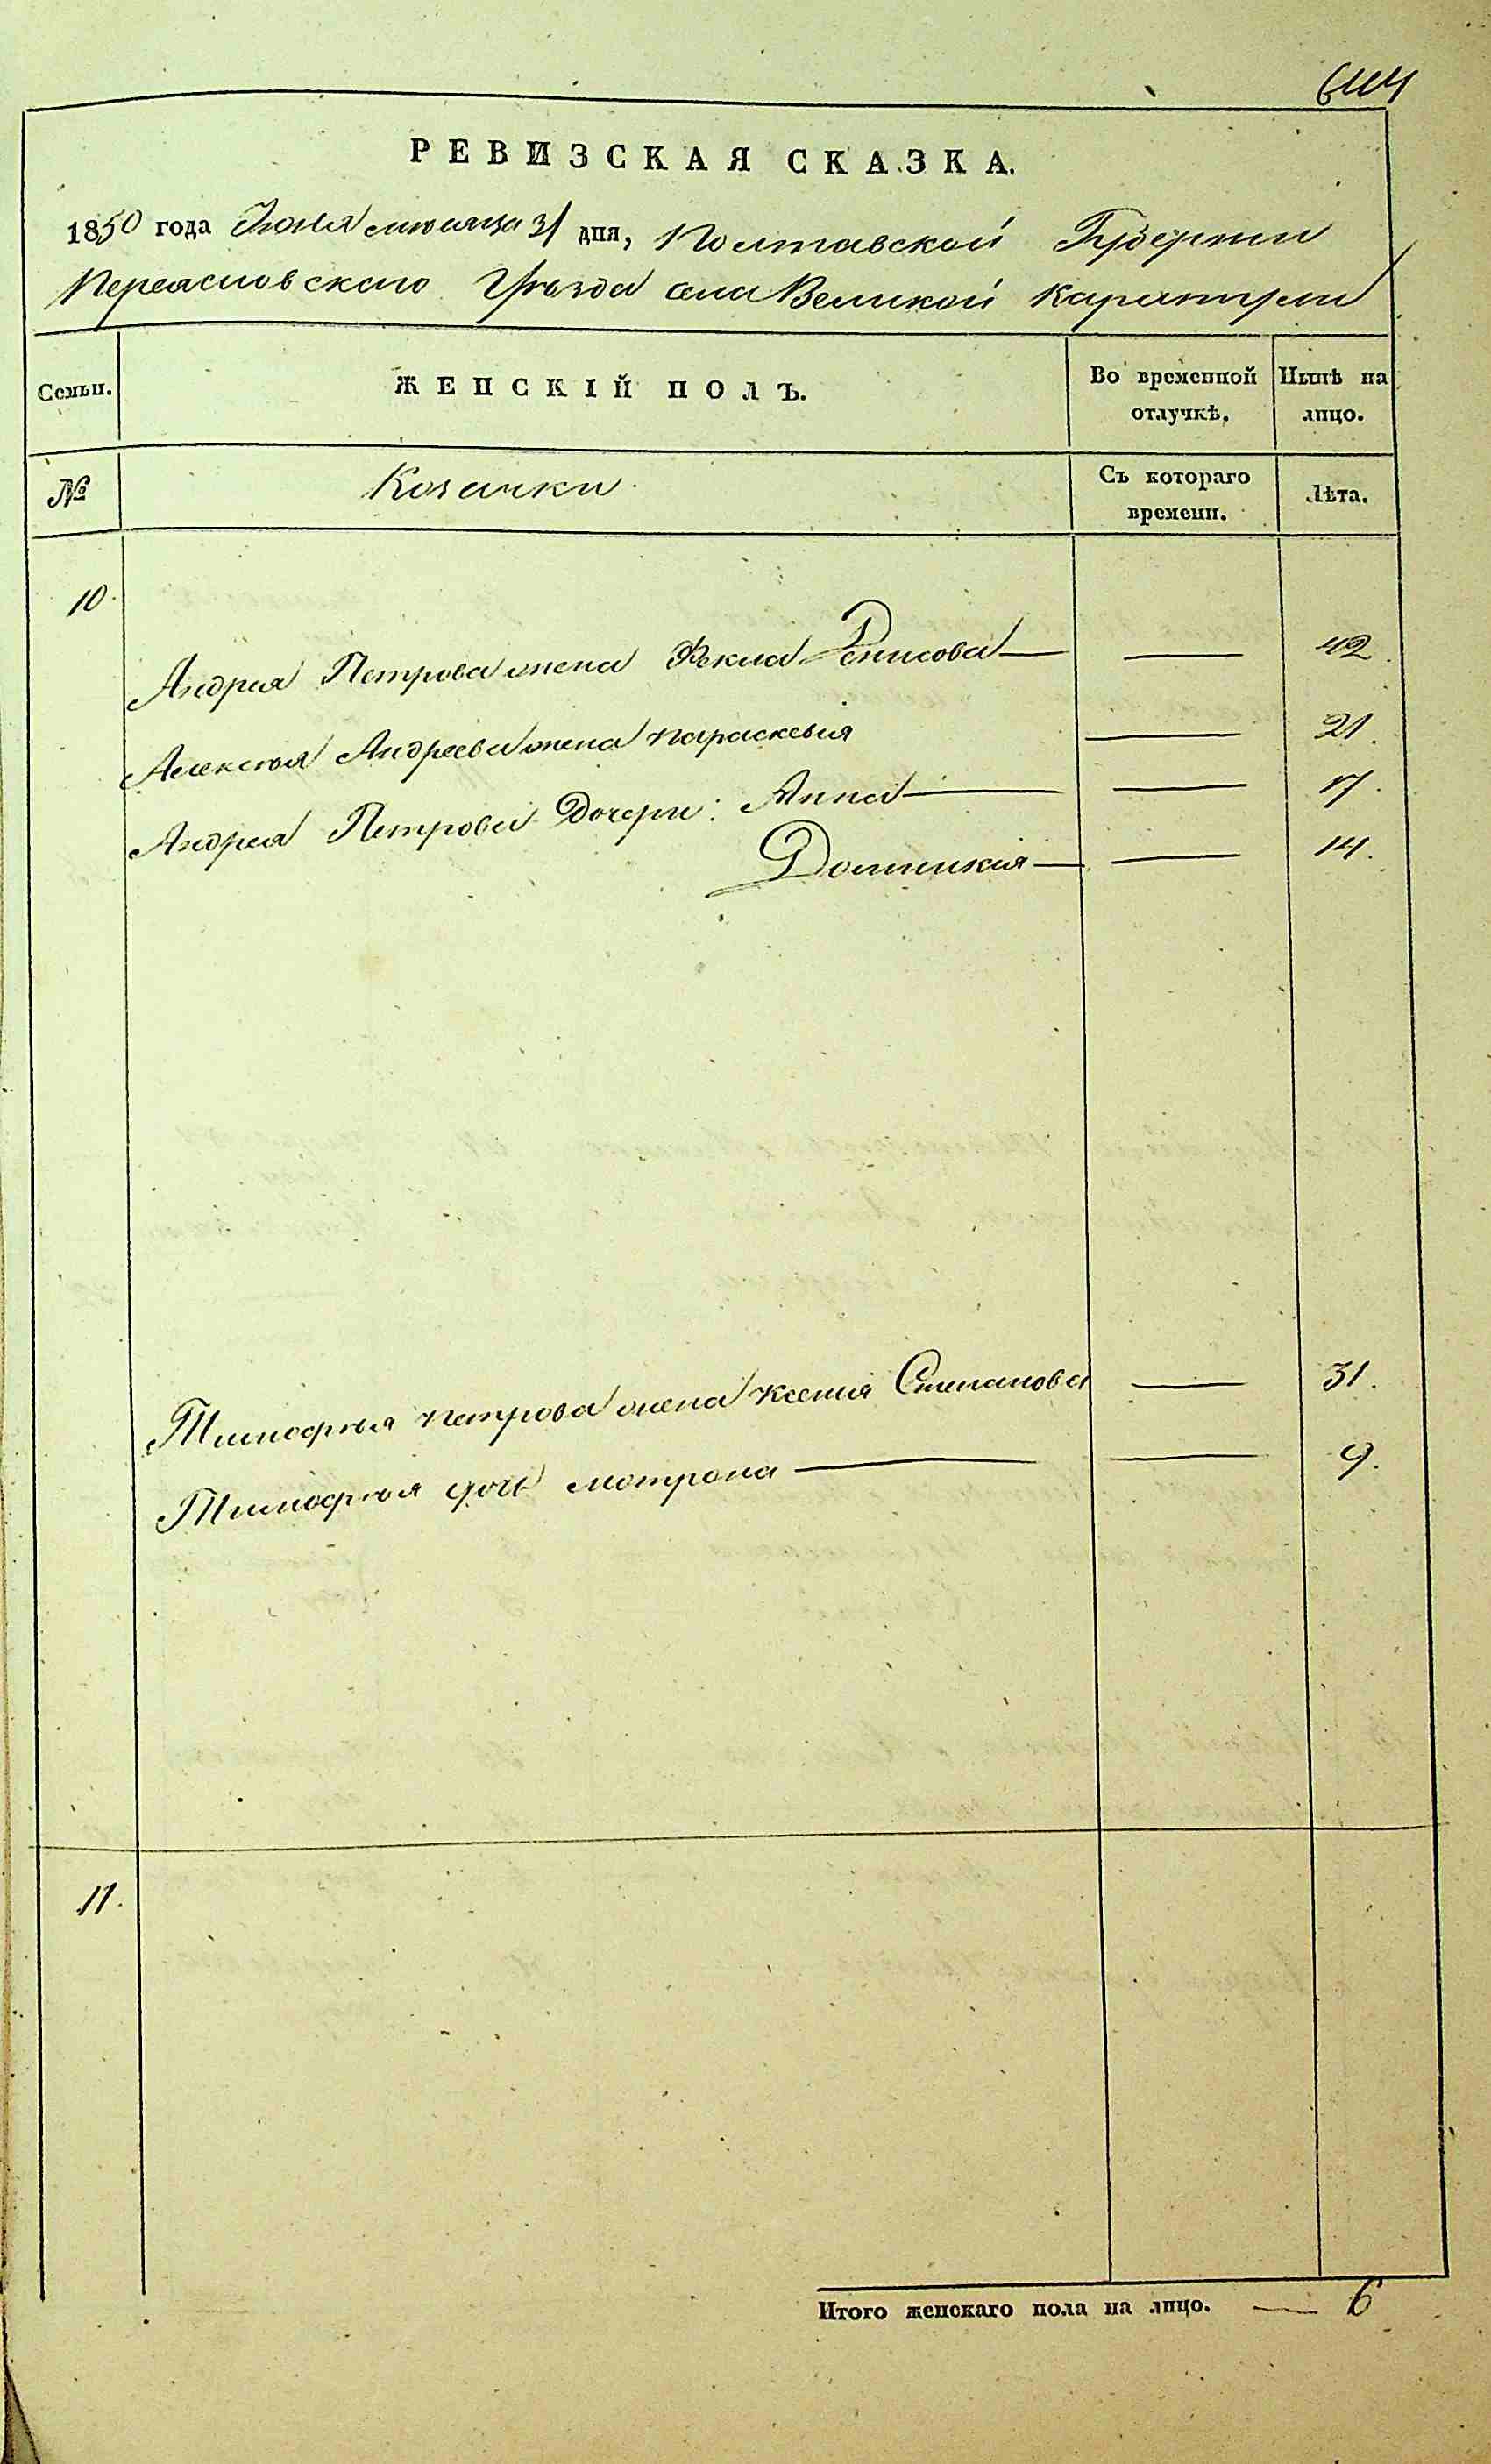 644
РЕВИЗСКАЯ СКАЗКА.
1850 года Июня месяца 31 дня, Полтавской Губернии
Переясловскаго Уѣзда села Великой Каратули
Семьи.
ЖЕНСКІЙ ПОЛЪ.
Во временной отлучкѣ.
Нынѣ на лицо.
№
Козачки.
Съ котораго времени.
Лѣта.
10.
Андрея Петрова жена Фекла Денисова — — 42.
Алексѣя Андреева жена Параскевія — 21.
Андрея Петрова Дочери: Анна — — 17.
Домникія — — 14.
Тимофѣя Петрова жена Ксенія Степанова — 31.
Тимофѣя дочь Мотрона — — 9.
11.
Итого женскаго пола на лицо. — 6